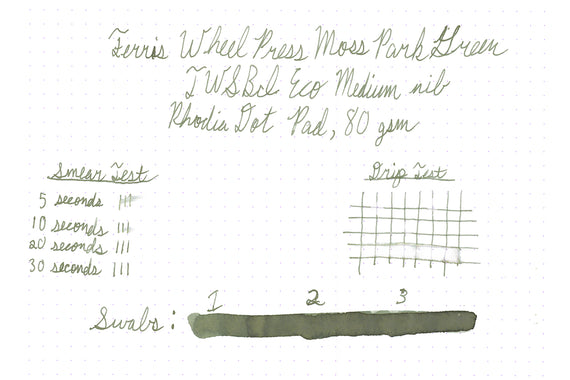 Ferris Wheel Press Moss Park Green
TWSBI Eco Medium nib
Rhodia Dot Pad, 80 gsm
Smear Test
Drip Test
5 seconds
10 seconds
20 seconds
30 seconds
1 2 3
Swabs: